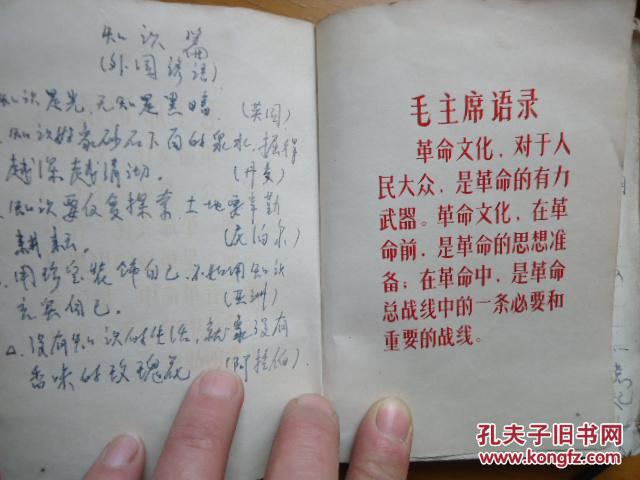 知识篇
(外国谚语)
知识是光，无知是黑暗。(英国)
知识好象砂石下面的泉水，掘得
越深越清沏。(丹麦)
知识要反复探索，土地要辛勤
耕耘。(尼泊尔)
用珍宝装饰自己，不如用知识
充实自己。(亚洲)
没有知识的生活，就象没有
香味的玫瑰花 (阿拉伯)
毛主席语录
革命文化，对于人
民大众，是革命的有力
武器。革命文化，在革
命前，是革命的思想准
备；在革命中，是革命
总战线中的一条必要和
重要的战线。
孔夫子旧书网
www.kongfz.com